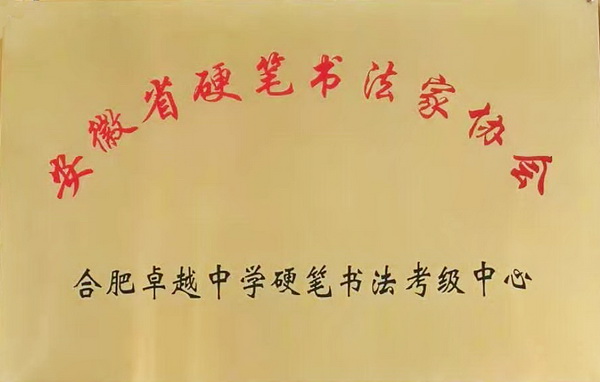 安徽省硬笔书法家协会
合肥卓越中学硬笔书法考级中心